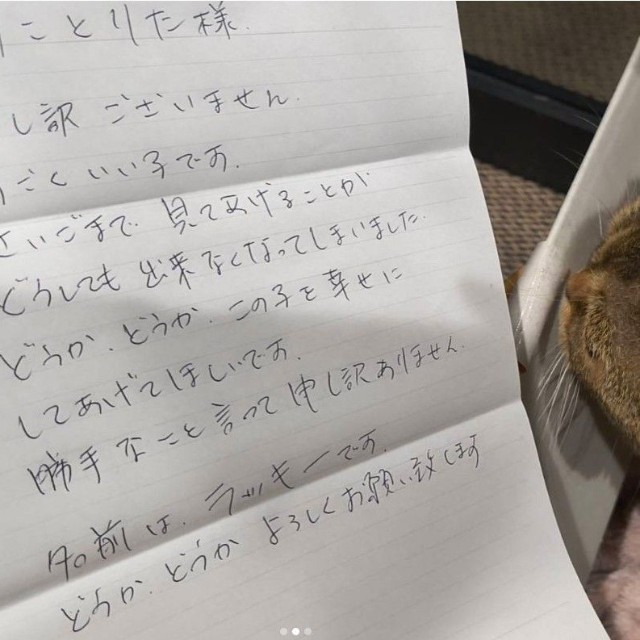 ことりた様
し訳ございません.
ごくいい子です.
さいごまで.見てあげることが
どうしても出来なくなってしまいました.
どうか.どうか.この子を幸せに
してあげてほしいです.
勝手なこと言って申し訳ありません.
名前は.ラッキーです.
どうか.どうかよろしくお願い致します